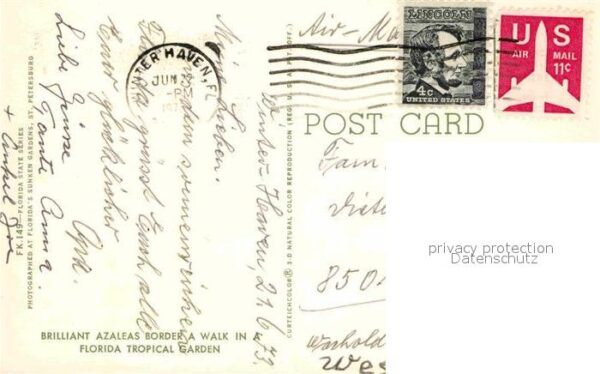 WINTER HAVEN, FL
JUN 22
PM
Air-Ma
LINCOLN
4c
UNITED STATES
US
AIR MAIL
11c
POST CARD
Winter-Haven, 21.6.73.
Meine Lieben.
Aus dem sonnenreichen
Florida grüsst Euch alle
Euer glücklicher
Opa.
Liebe Grüsse
Tante Anna
+ Onkel Joe
Fam
850
West
privacy protection
Datenschutz
CURTEICHCOLOR® 3-D NATURAL COLOR REPRODUCTION (REG. U.S.A. PAT. OFF.)
FK.149—FLORIDA STATE SERIES
PHOTOGRAPHED AT FLORIDA'S SUNKEN GARDENS, ST. PETERSBURG
BRILLIANT AZALEAS BORDER A WALK IN A
FLORIDA TROPICAL GARDEN